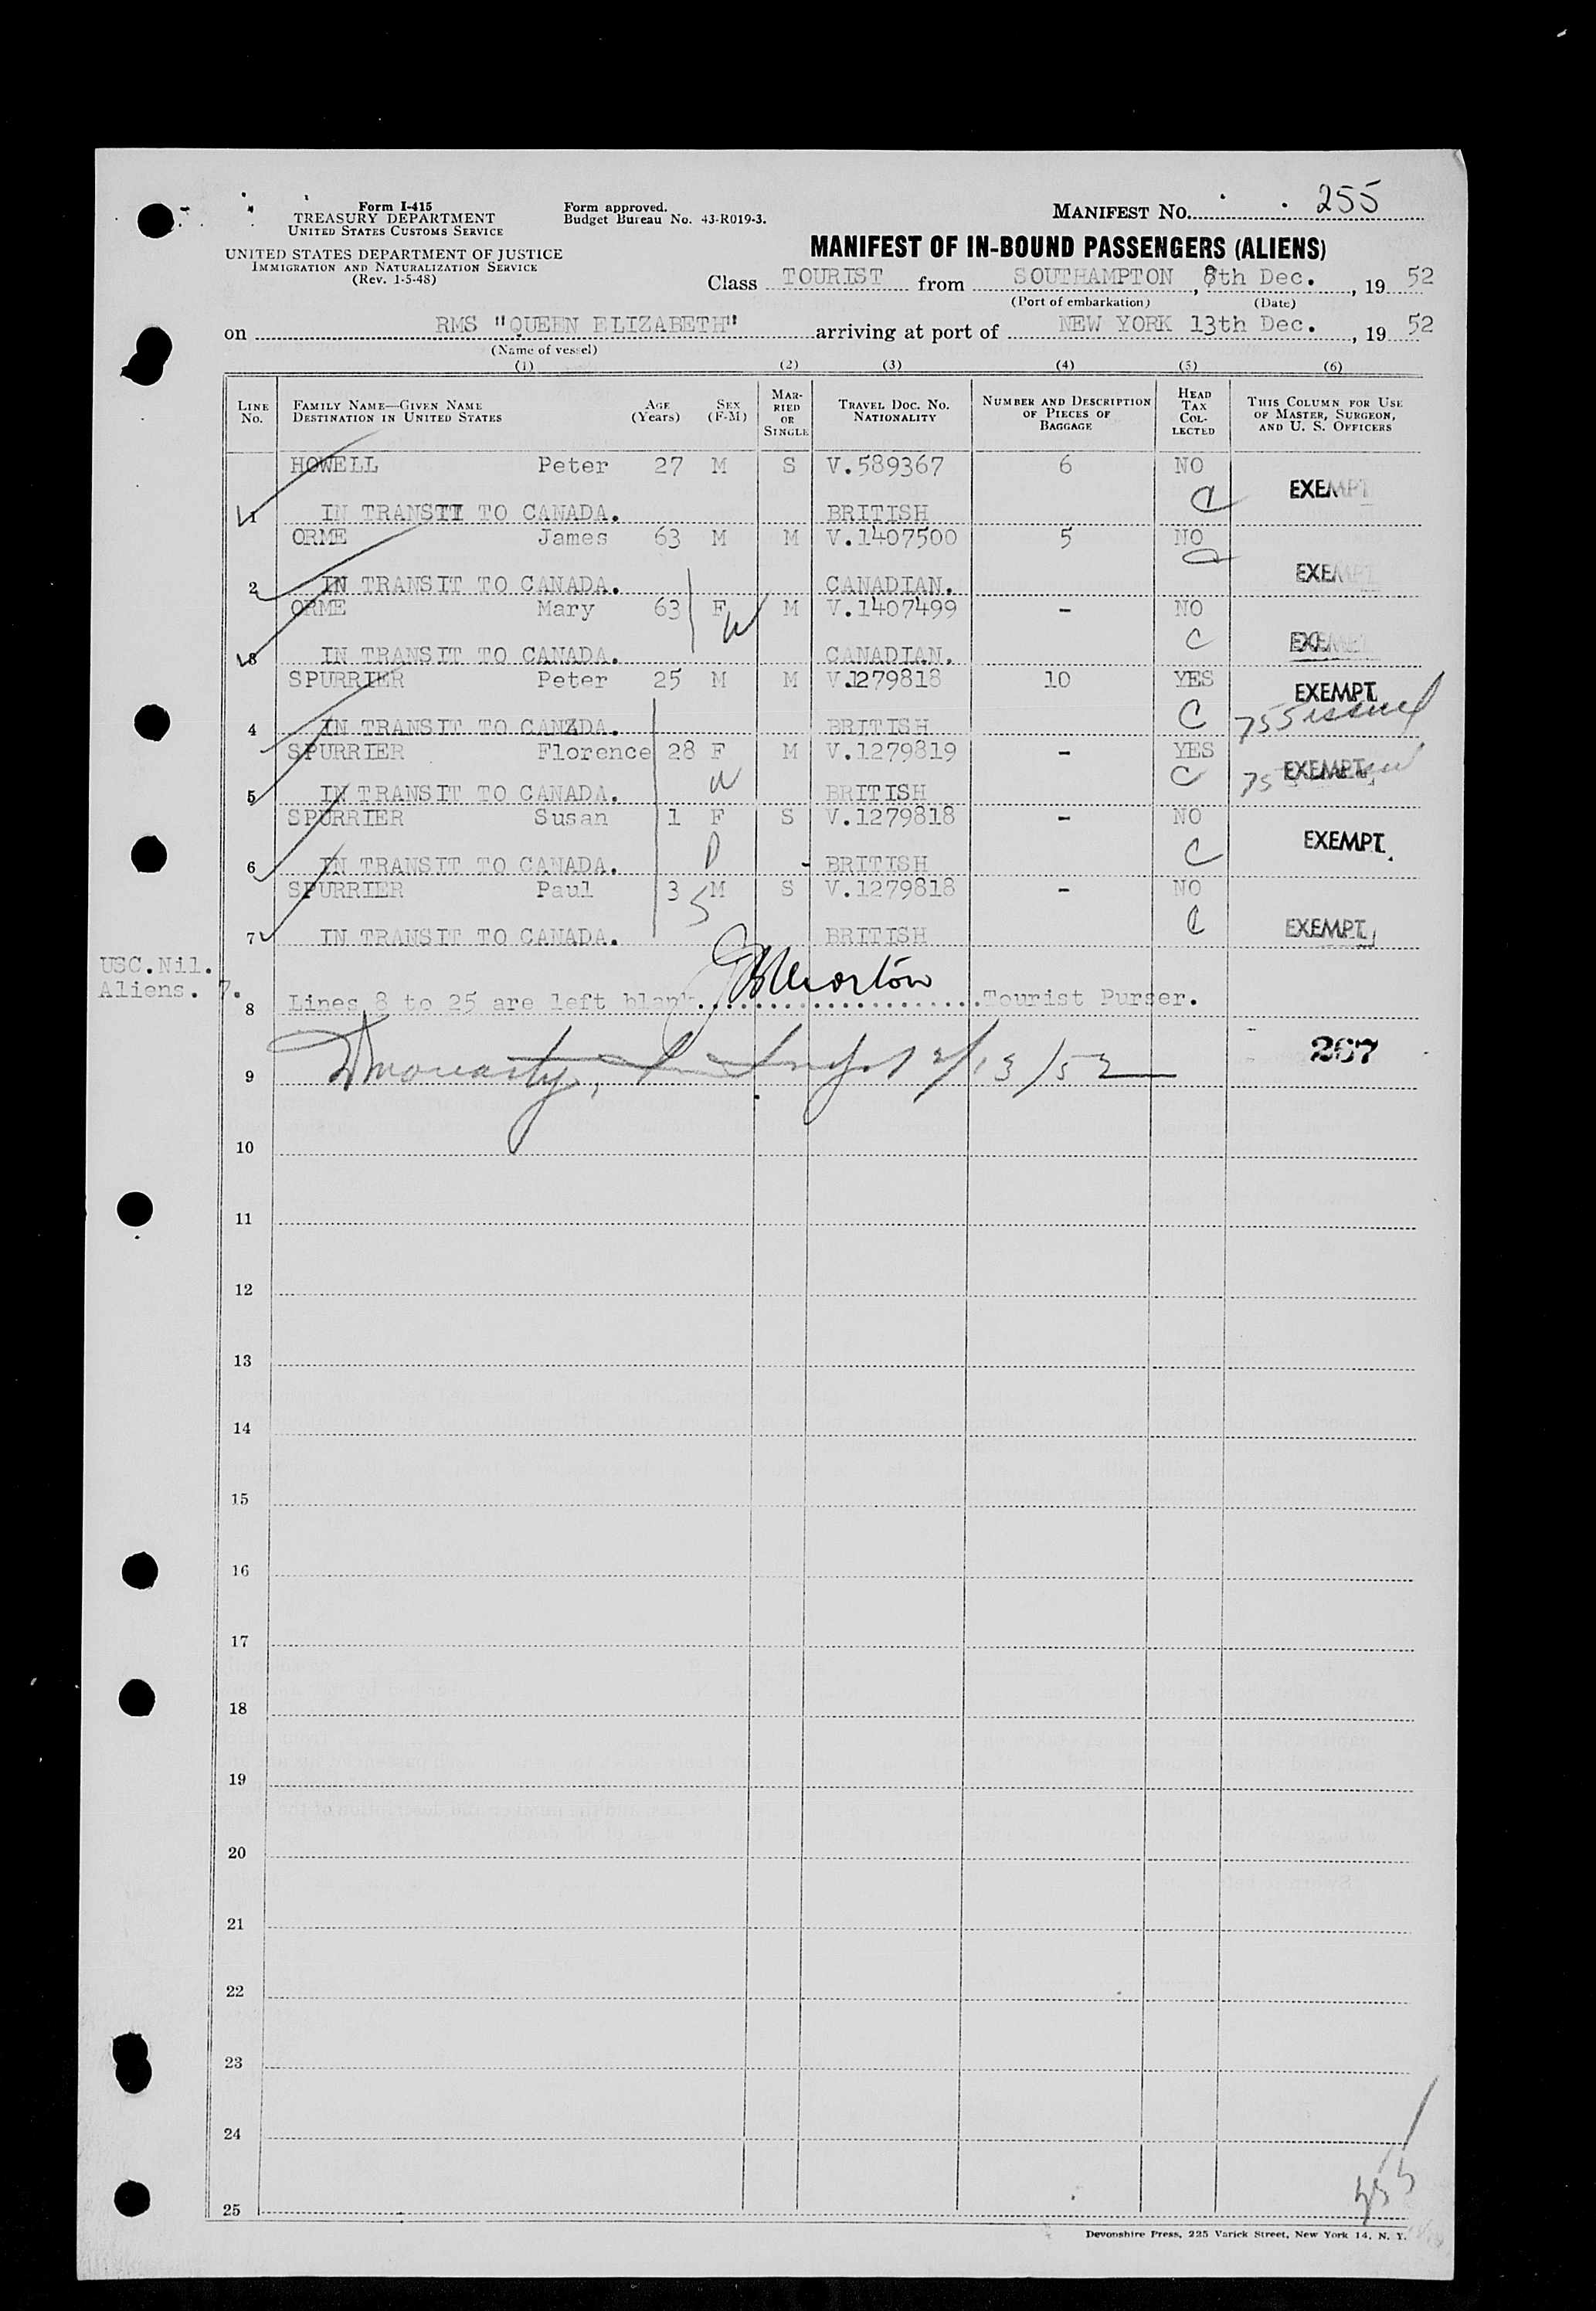 Form I-415
TREASURY DEPARTMENT
UNITED STATES CUSTOMS SERVICE
UNITED STATES DEPARTMENT OF JUSTICE
IMMIGRATION AND NATURALIZATION SERVICE
(Rev. 1-5-48)
Form approved.
Budget Bureau No. 43-R019-3.
MANIFEST No. 255
MANIFEST OF IN-BOUND PASSENGERS (ALIENS)
Class TOURIST from SOUTHAMPTON, 8th Dec., 19 52
(Port of embarkation) (Date)
on RMS "QUEEN ELIZABETH" arriving at port of NEW YORK 13th Dec., 19 52
(Name of vessel)
(1) (2) (3) (4) (5) (6)
LINE No. FAMILY NAME—GIVEN NAME DESTINATION IN UNITED STATES AGE (Years) SEX (F-M) MARRIED OR SINGLE TRAVEL DOC. NO. NATIONALITY NUMBER AND DESCRIPTION OF PIECES OF BAGGAGE HEAD TAX COLLECTED THIS COLUMN FOR USE OF MASTER, SURGEON, AND U. S. OFFICERS
HOWELL Peter 27 M S V.589367 6 NO EXEMPT
1 IN TRANSIT TO CANADA. BRITISH C
ORME James 63 M M V.1407500 5 NO EXEMPT
2 IN TRANSIT TO CANADA. CANADIAN. C
ORME Mary 63 F W M V.1407499 - NO EXEMPT
3 IN TRANSIT TO CANADA. CANADIAN. C
SPURRIER Peter 25 M M V.1279818 10 YES EXEMPT.
4 IN TRANSIT TO CANADA. BRITISH C 755 issued
SPURRIER Florence 28 F M V.1279819 - YES EXEMPT.
5 IN TRANSIT TO CANADA. W BRITISH C
SPURRIER Susan 1 F S V.1279818 - NO EXEMPT.
6 IN TRANSIT TO CANADA. D BRITISH C
SPURRIER Paul 3 M S V.1279818 - NO
7 IN TRANSIT TO CANADA. S BRITISH C EXEMPT.
USC.Nil.
Aliens. 7.
8 Lines 8 to 25 are left blank. Morton Tourist Purser.
267
9 12/13/52
10
11
12
13
14
15
16
17
18
19
20
21
22
23
24
25
Devonshire Press, 225 Varick Street, New York 14, N. Y.